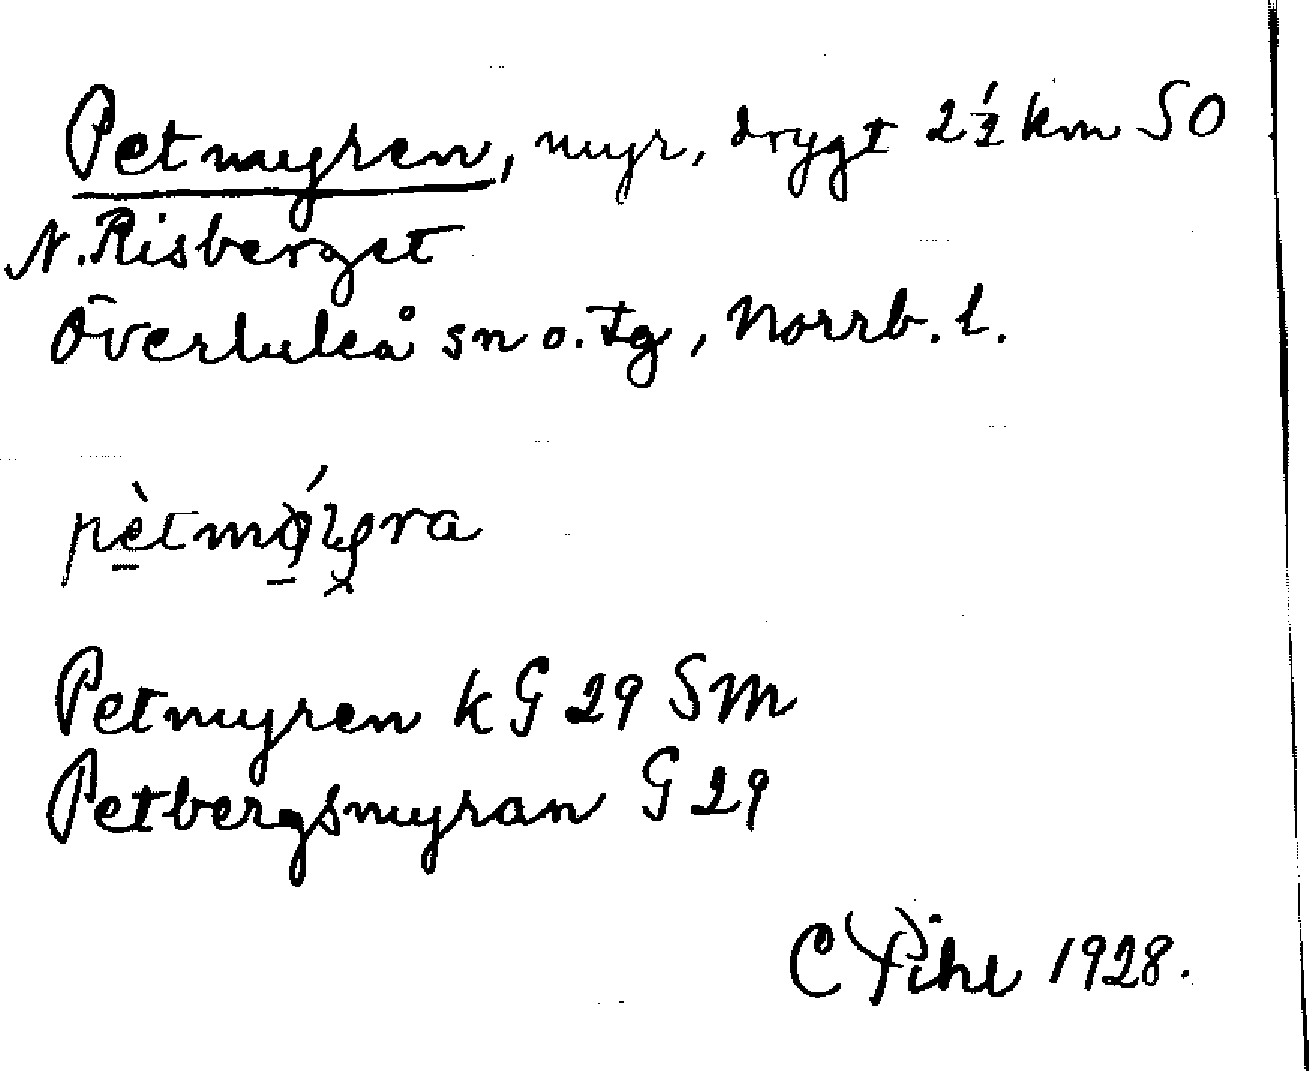 Petmyren, myr, drygt 2½ km SO
N. Risberget
Överluleå sn o. tg, Norrb. l.
Petmyren k G 29 SM
Petbergsmyran G 29
C Pihl 1928.